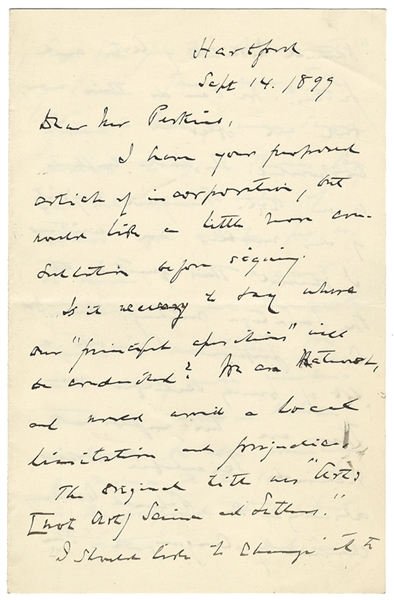 Hartford
Sept 14. 1899
Dear Mr Perkins,
I have your proposed
article of incorporation, but
would like a little more con-
sultation before signing.
Is it necessary to say where
our "principal operations" will
be conducted? We are National,
and would avoid a local
limitation and prejudice.
The original title was "Arts
[not Art] Science and Letters."
I should like to change it to